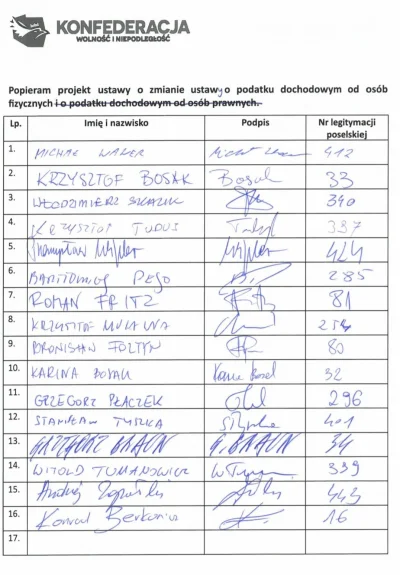 KONFEDERACJA
WOLNOŚĆ I NIEPODLEGŁOŚĆ
Popieram projekt ustawy o zmianie ustawy o podatku dochodowym od osób
fizycznych i o podatku dochodowym od osób prawnych.
Lp. Imię i nazwisko Podpis Nr legitymacji poselskiej
1. MICHAŁ WAWER 412
2. KRZYSZTOF BOSAK Bosak 33
3. WŁODZIMIERZ SKALIK 340
4. KRZYSZTOF TUDUJ 397
5. Przemysław Wipler Wipler 424
6. BARTŁOMIEJ PEJO 285
7. ROMAN FRITZ 81
8. KRZYSZTOF MULAWA
9. BRONISŁAW FOLTYN 80
10. KARINA BOSAK 32
11. GRZEGORZ PŁACZEK 296
12. STANISŁAW TYSZKA 401
13. GRZEGORZ BRAUN G. BRAUN 34
14. WITOLD TUMANOWICZ 399
15. Andrzej Zapałowski 443
16. Konrad Berkowicz 16
17.